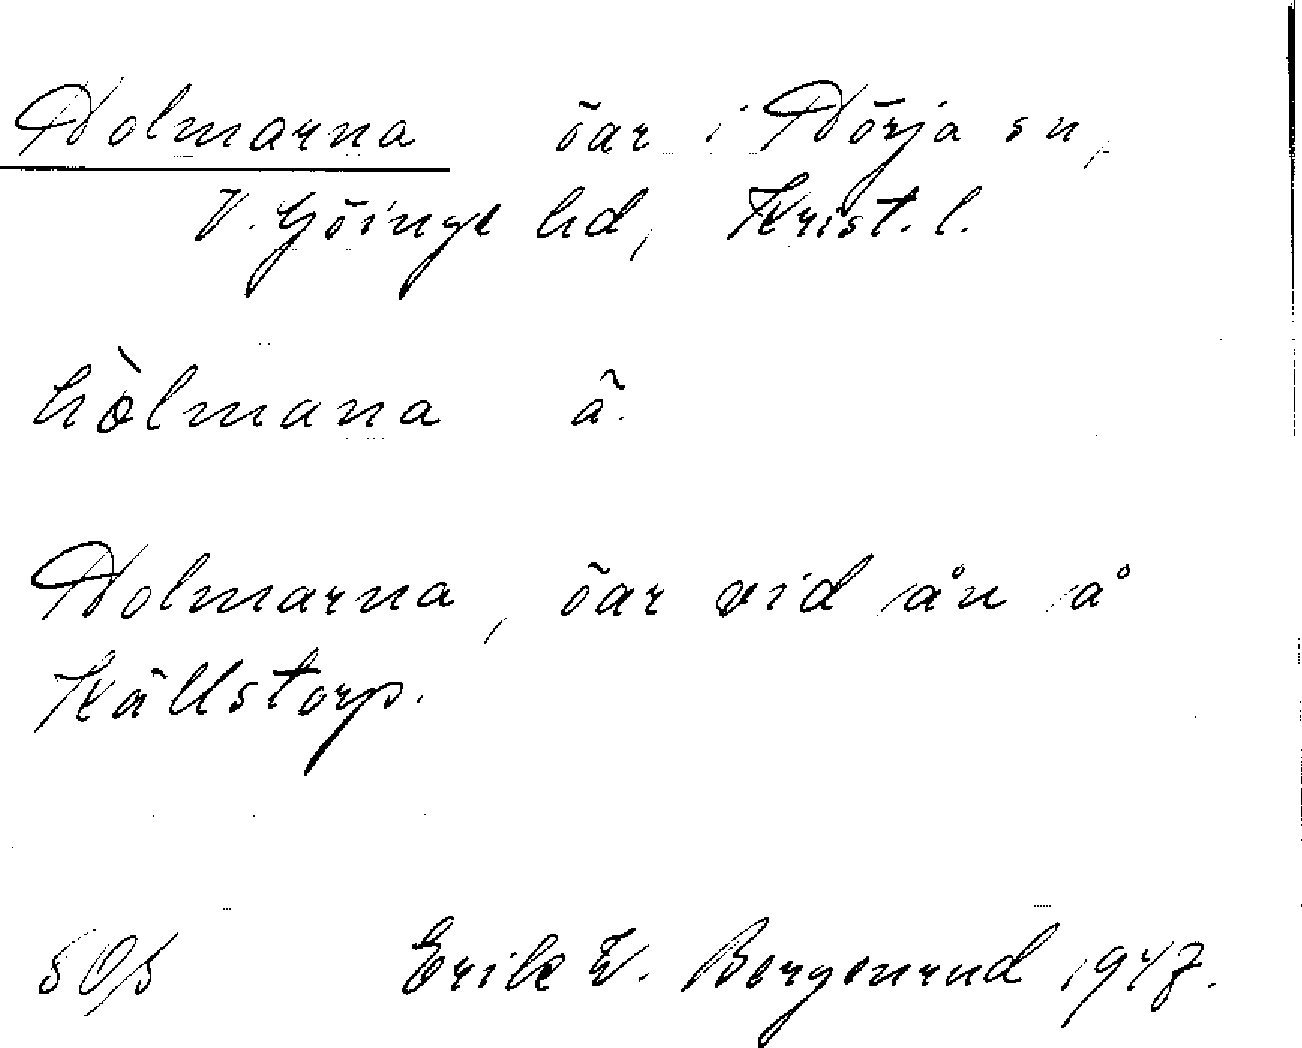 Holmarna öar i Hörja sn,
V. Göinge hd, Krist. l.
hòlmana ã.
Holmarna, öar vid ån å
Källstorp.
Erik W. Bergenrud 1947.